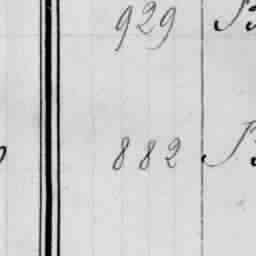 929
882